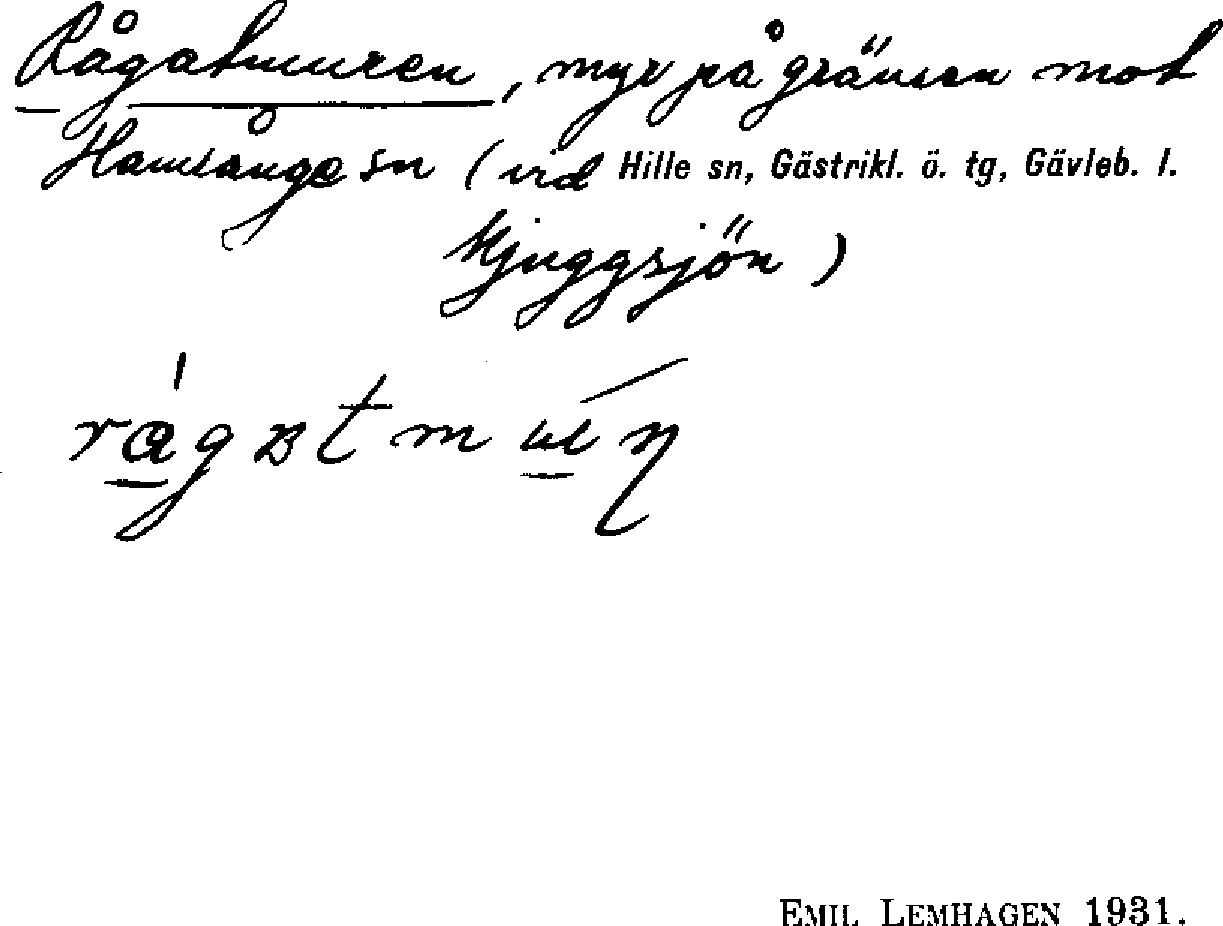 Rågatmuren, myr på gränsen mot
Hamrånge sn (vid Hille sn, Gästrikl. ö. tg, Gävleb. l.
Kjuggsjön)
EMIL LEMHAGEN 1931.